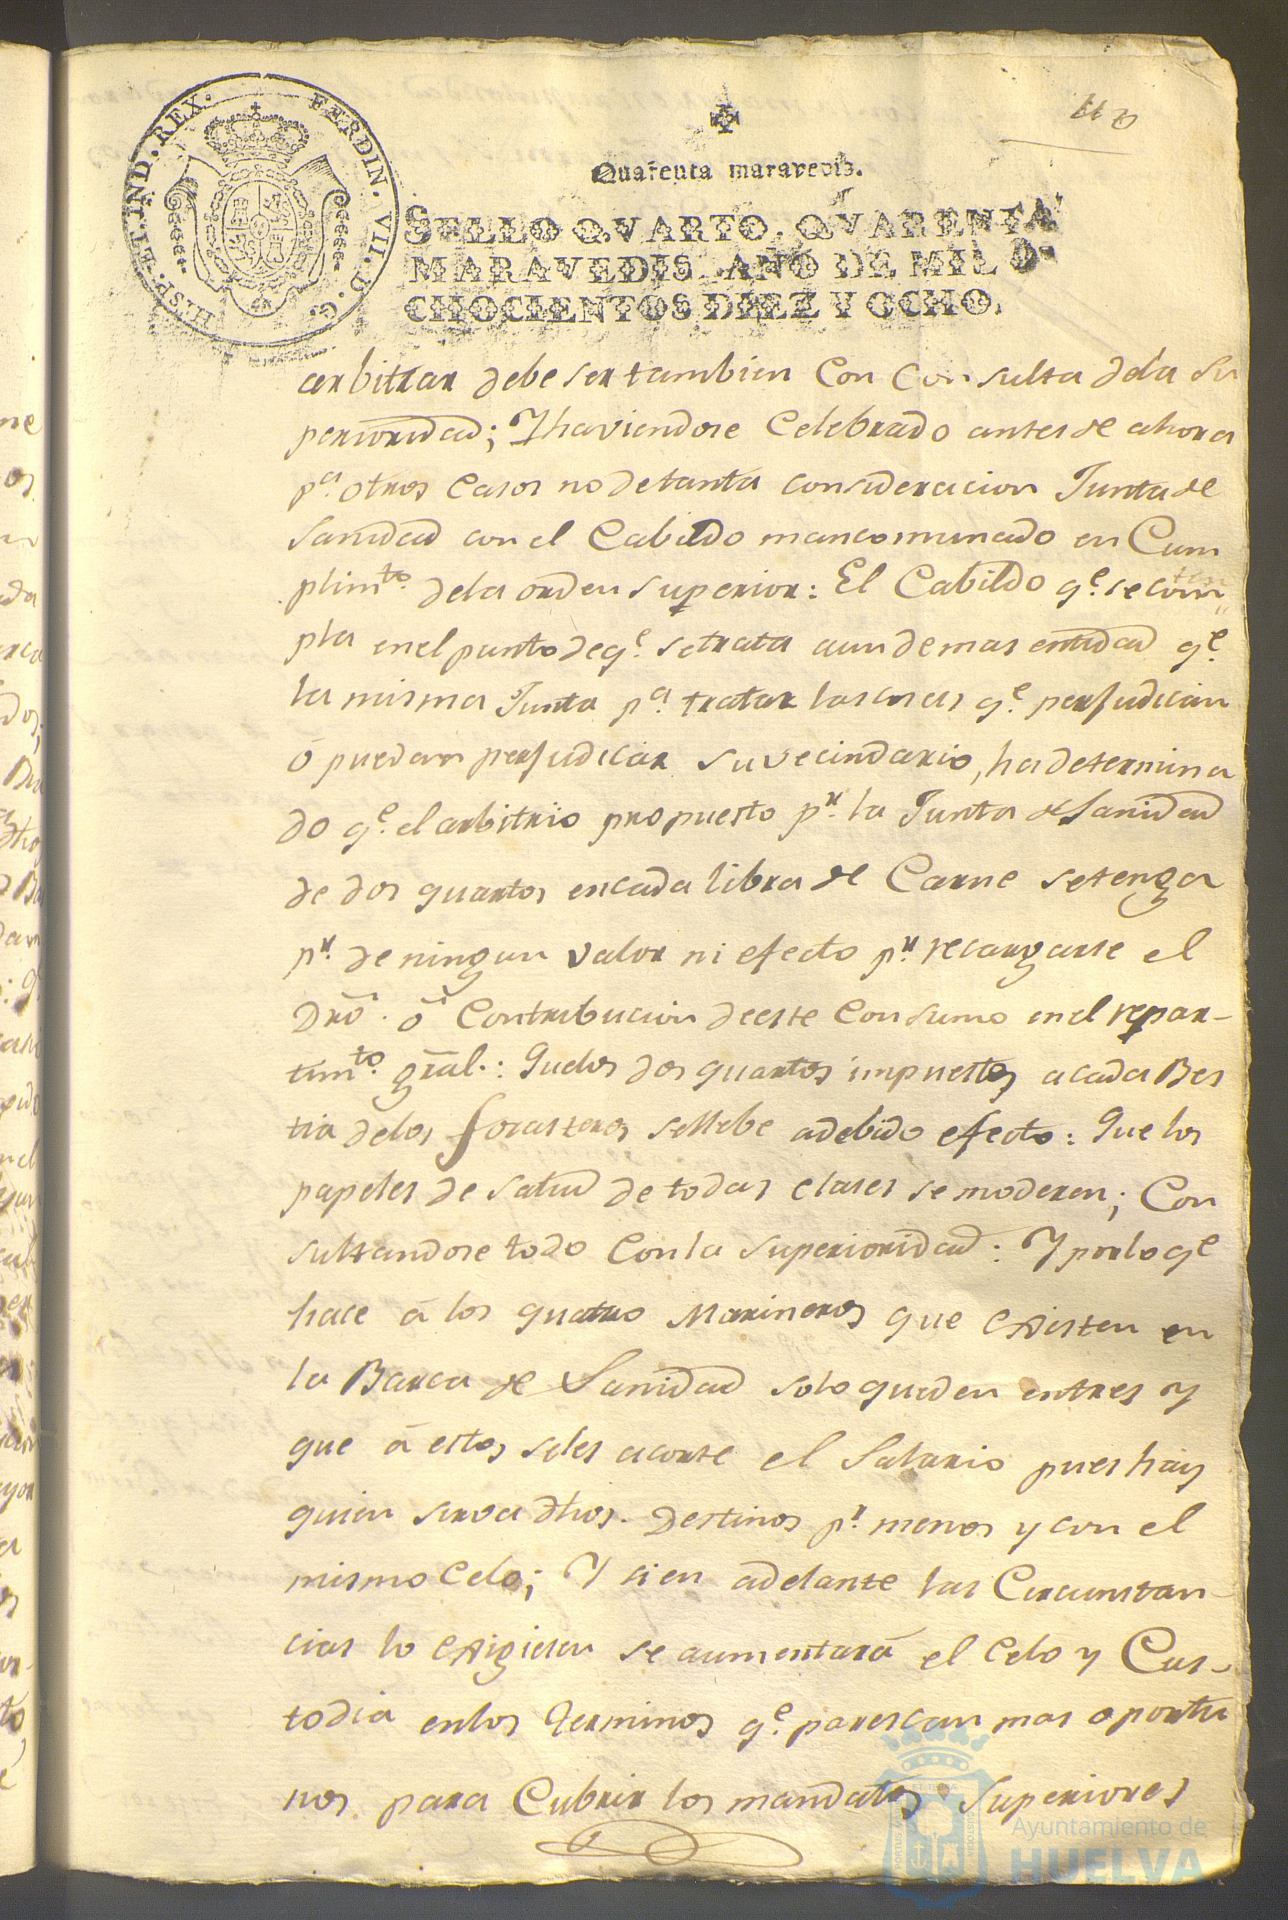 HISP. ET. IND. REX. FERDIN. VII. D. G.
Quarenta maravedis.
SELLO QVARTO, QVARENTA
MARAVEDIS, AÑO DE MIL O-
CHOCIENTOS DIEZ Y OCHO.
arbitrar debe ser tambien con consulta dela Su
perioridad; Y haviendose Celebrado antes de ahora
pa. otros Casos no de tanta consideracion Junta de
Sanidad con el Cabildo mancomunado en Cum
plimto. dela orden superior: El Cabildo qe. se com
pla en el punto de qe. se trata aun de mas entidad qe.
la misma Junta pa. tratar las cosas qe. perjudican
ó puedan perjudicar su vecindario, ha determina
do qe. el arbitrio propuesto pr. la Junta de Sanidad
de dos quartos en cada libra de Carne se tenga
pr. de ningun valor ni efecto pr. recargarse el
Dro. ó Contribucion de este Consumo en el repar-
timto. gral.: Que los dos quartos impuestos a cada Bes
tia delos forasteros se llebe a debido efecto: Que los
papeles de Salud de todas clases se moderen; Con
sultandose todo con la superioridad: Y por lo qe
hace á los quatro Marineros que existen en
la Barca de Sanidad solo queden en tres y
que á estos seles acorte el Salario pues hay
quien sirva dhos. Destinos pr. menos y con el
mismo Celo; Y si en adelante las Circunstan-
cias lo exigiesen se aumentará el Celo y Cus-
todia en los terminos qe. parescan mas oportu
nos para Cubrir los mandatos Superiores
Ayuntamiento de
HUELVA